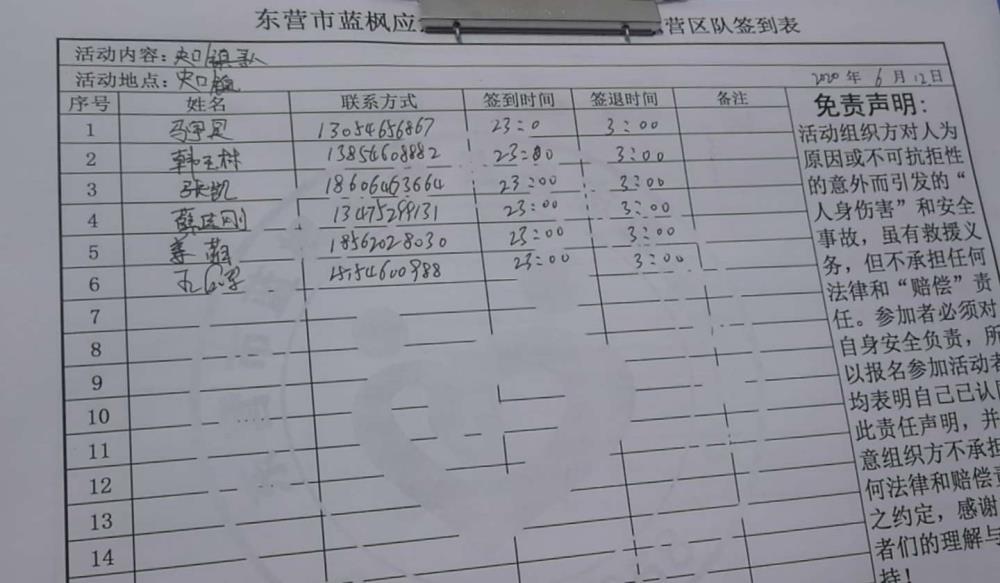 东营市蓝枫应 营区队签到表
活动内容:
活动地点:
2020 年 6 月 12日
序号 姓名 联系方式 签到时间 签退时间 备注
1 13054656867 23:0 3:00
2 韩玉林 13854608882 23:00 3:00
3 张凯 18606463664 23:00 3:00
4 薛 刚 13475299131 23:00 3:00
5 姜 18562028030 23:00 3:00
6 23:00 3:00
7
8
9
10
11
12
13
14
免责声明:
活动组织方对人为
原因或不可抗拒性
的意外而引发的“
人身伤害”和安全
事故,虽有救援义
务,但不承担任何
法律和“赔偿”责
任。参加者必须对
自身安全负责,所
以报名参加活动者
均表明自己已认
此责任声明,并
意组织方不承担
何法律和赔偿责
之约定,感谢
者们的理解与
持!